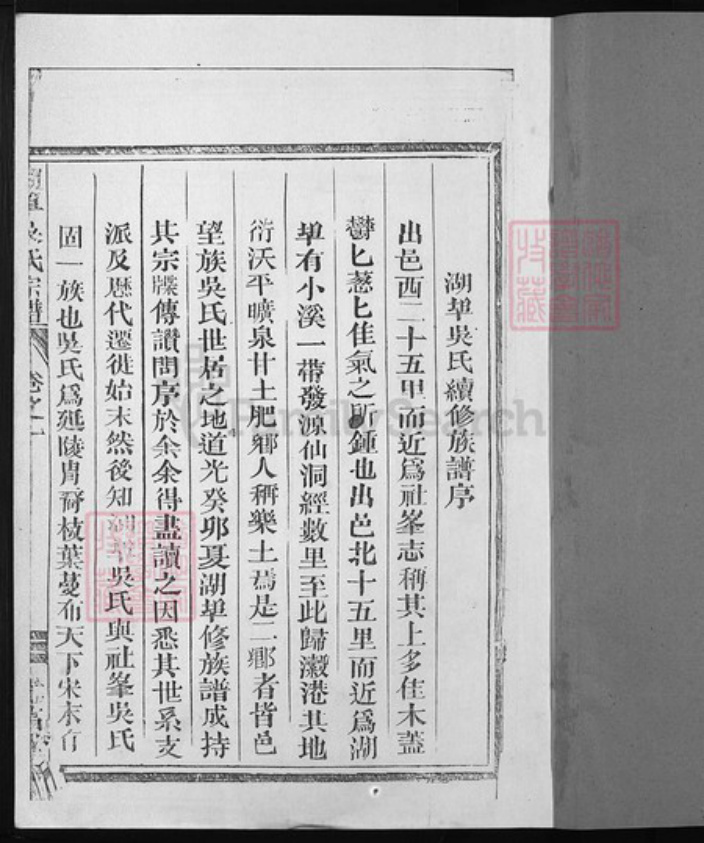 湖垾吳氏續修族譜序
出邑西二十五里而近爲社峯志稱其上多佳木蓋
鬱匕葱匕佳氣之所鍾也出邑北十五里而近爲湖
垾有小溪一帶發源仙洞經數里至此歸瀫港其地
衍沃平曠泉甘土肥鄉人稱樂土焉是二鄉者皆邑
望族吳氏世居之地道光癸卯夏湖垾修族譜成持
其宗牒傳讚問序於余余得盡讀之因悉其世系支
派及歷代遷徙始末然後知湖垾吳氏與社峯吳氏
固一族也吳氏爲延陵冑裔枝葉蔓布天下宋末有
吳氏宗譜
卷之一
FamilySearch